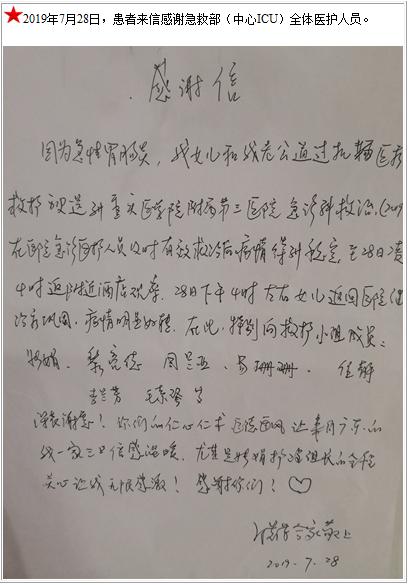 ★2019年7月28日，患者来信感谢急救部（中心ICU）全体医护人员。
感谢信
因为急性胃肠炎，我女儿和我老公通过扎辅医疗
救护被送到重庆医学院附属第三医院急诊科救治，(2019
在医院急诊医护人员及时有效救治后病情得到稳定，至28日凌
4时返附近酒店观察。28日下午4时左右女儿返回医院继
治疗巩固，病情明显好转。在此，特别向救护小组成员：
娟，蔡亮德 周 珊珊，任静
李兰芳 王
深表谢意！你们的仁心仁术医德医风让来自广东的
我一家三口倍感温暖，尤其是 娟护理组长的全程
关心让我无限感激！感谢你们！♡
全家敬上
2019.7.28